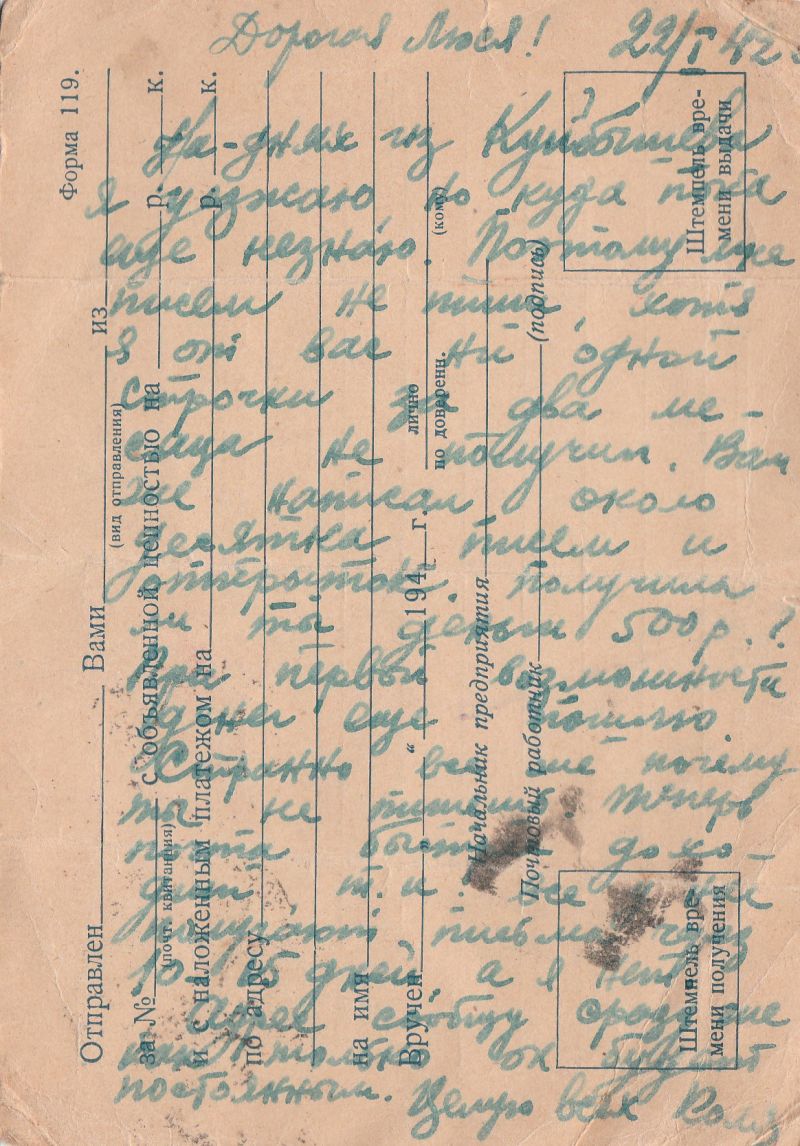 Дорогая Люся! 22/I 42 г.
На-днях из Куйбышева
я уезжаю, но куда пока
еще незнаю. Поэтому мне
писем не пиши, хотя
я от вас ни одной
строчки за два ме-
сяца не получил. Вам
же написал около
десятка писем и
открыток. Получила
ли ты деньги 500 р.?
При первой возможности
денег еще пошлю.
Странно все же почему
ты не пишешь. Теперь
почта быстро дохо-
дит, т.к. все
получают письма через
10-15 дней, а я нет.
Адрес сообщу сразу же
как только он будет
постоянным. Целую всех Коля
Форма 119.
Отправлен Вами из
(вид отправления)
за № с объявленной ценностью на р. к.
(почт. квитанция)
и с наложенным платежом на р. к.
по адресу
на имя
Вручен „ “ 194 г. лично
по доверен. (кому)
Начальник предприятия
Почтовый работник (подпись)
Штемпель вре-
мени выдачи
Штемпель вре-
мени получения